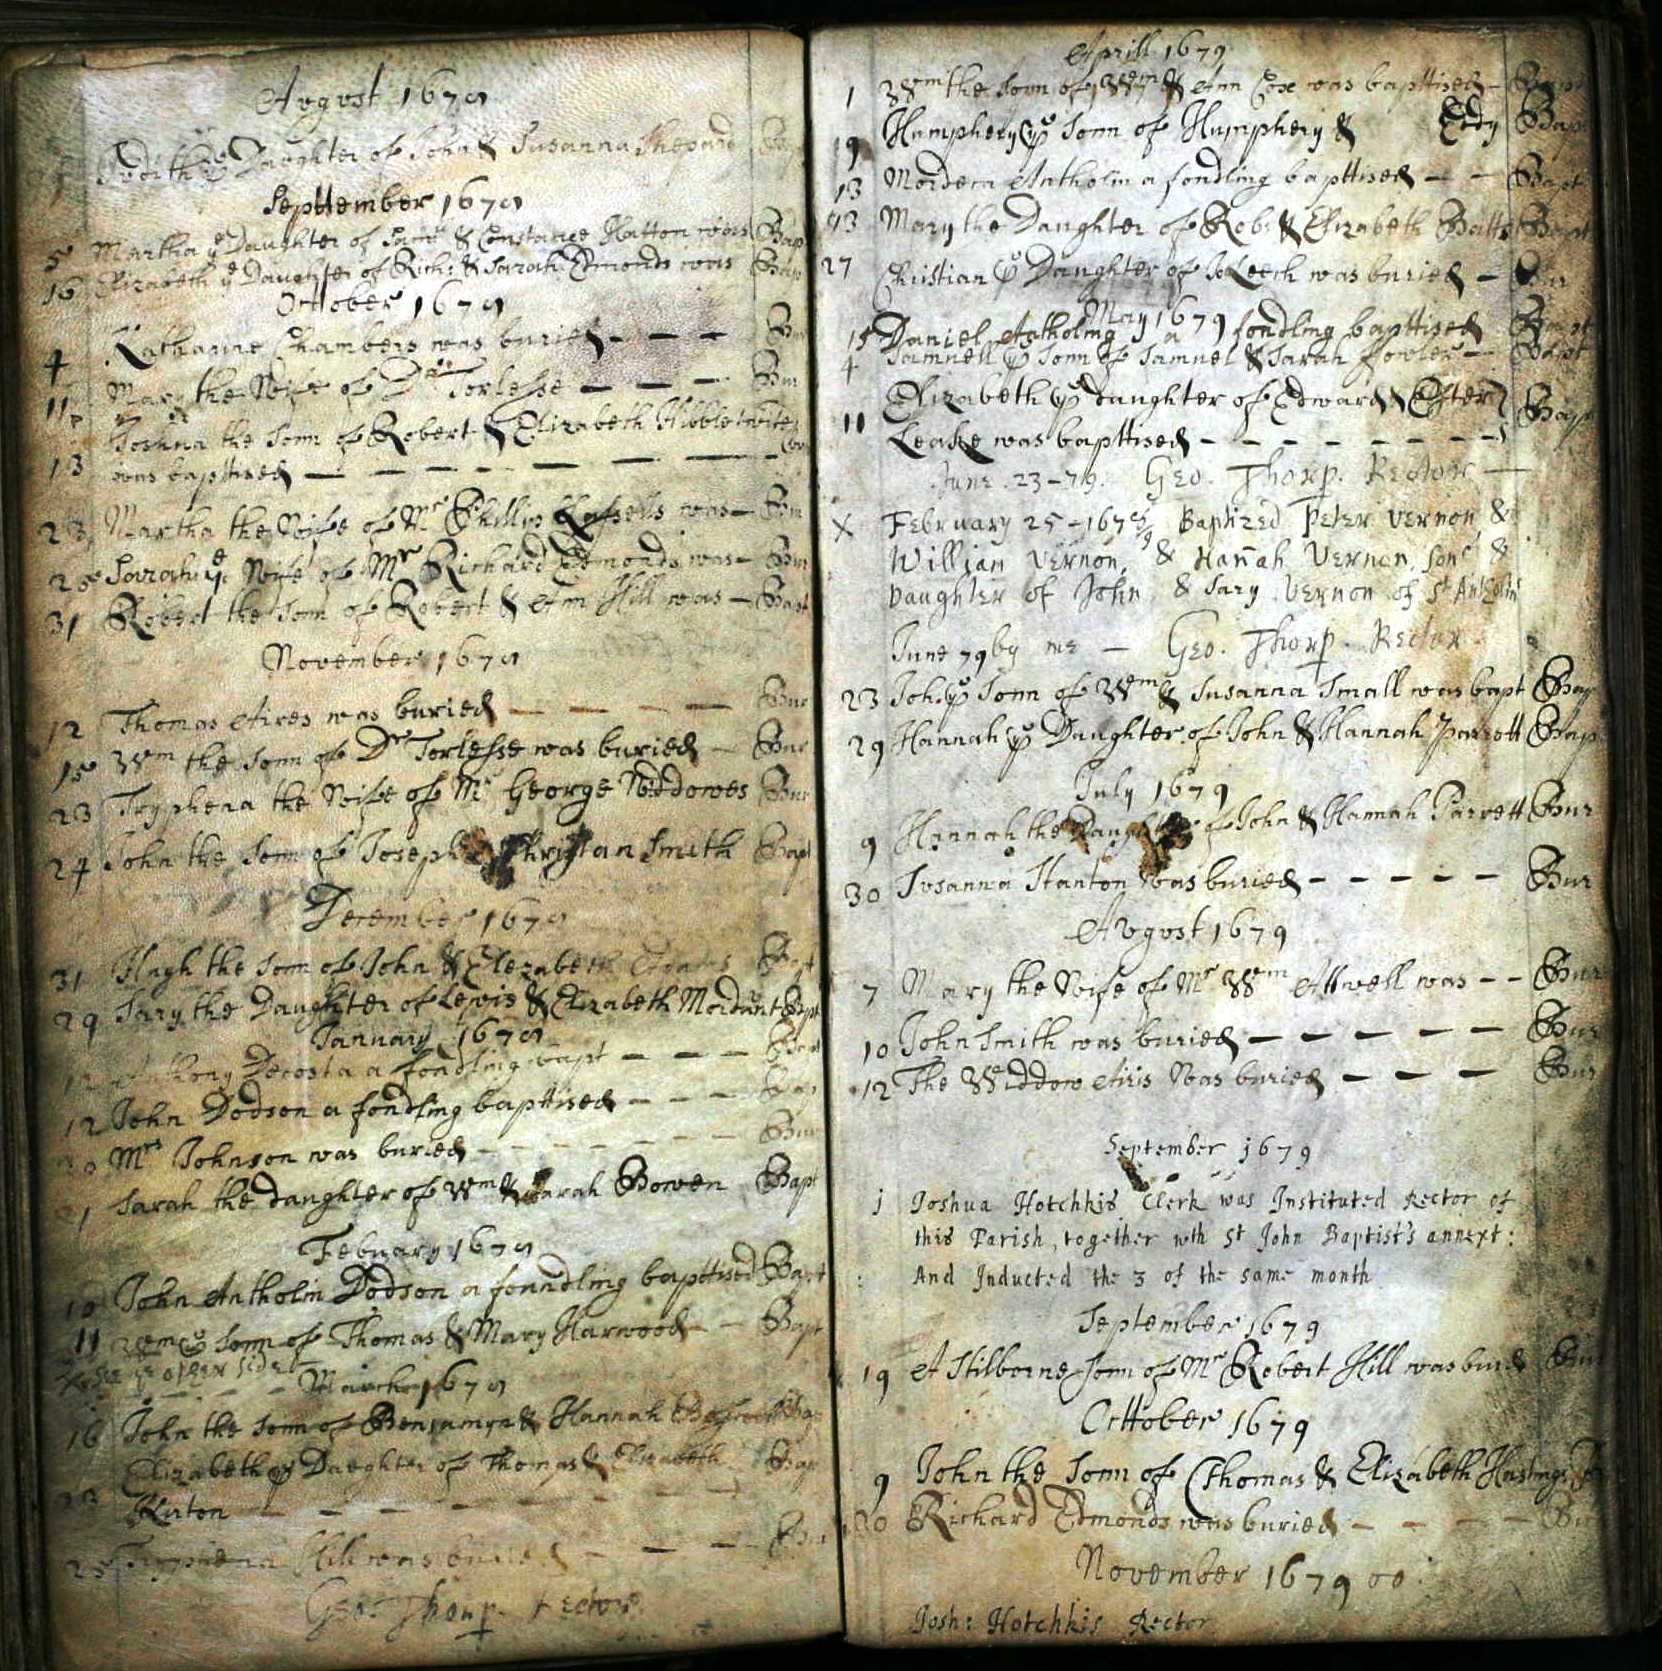 Avgvst 1678
Daughter of John & Susanna Shepard
Septtember 1678
5 Martha ye Daughter of Sam: & Constance Hatton was Bap
16 Elizabeth ye Daughter of Rich: & Sarah Edmonds was Bap
October 1678
4 Katharine Chambers was buried Bur
11 Mary the Wife of Dr Torlesse Bur
13 Joshua the Sonn of Robert & Elizabeth
was bapttised
23 Martha the Wife of Mr Phillip Lassells was Bur
Sarah ye Wife of Mr Richard Edmonds was Bur
31 Robert the Sonn of Robert & Ann Hill was Bapt
November 1678
12 Thomas Aires was buried Bur
15 Wm the Sonn of Dr Torlesse was buried Bur
23 Tryphena the Wife of Mr George Widdowes Bur
24 John the Sonn of Joseph Christian Smith Bapt
December 1678
31 Hugh the Sonn of John & Elezabeth Bapt
29 Sary the Daughter of Lewis & Elizabeth Mordant Bapt
January 1678
12 Anthony Decosta a fondling bapt Bapt
12 John Dodson a fondling bapttised Bap
Mrs Johnson was buried Bur
Sarah the daughter of Wm & Sarah Bowen Bapt
Februáry 1678
10 John Antholin Dodson a fonndling bapttised Bapt
11 Wm ye Sonn of Thomas & Mary Harwood Bapt
X See ye other side
March 1678
16 John the Sonn of Benjamyn & Hannah
Elizabeth ye Daughter of Thomas & Elizabeth Bap
Ruton
25 Tryphena Hill was buried Bur
Geo. Thorp. Rector
Aprill 1679
1 Wm the Sonn of Wm & Ann Cox was bapttised Bapt
9 Humphery ye Sonn of Humphery & Eedy Bapt
13 Mordeca Antholin a fondling bapttised Bapt
13 Mary the Daughter of Rob: & Elizabeth Batts Bapt
27 Christian ye Daughter of Jo Leech was buried Bur
May 1679
15 Daniel Antholing a fondling bapttised Bapt
4 Samuell ye Sonn of Samuel & Sarah Fowler Bapt
11 Elizabeth ye daughter of Edward & Ester Bap
Leake was bapttised
June. 23-79. Geo. Thorp. Rector
X February 25-1678/9 Baptized Peter Vernon &
William Vernon, & Hannah Vernon, Sons &
Daughter of John, & Sary Vernon of St Antholin
June 79 by me — Geo. Thorp. Rector
23 Joh. ye Sonn of Wm & Susanna Small was bapt Bap
29 Hannah ye Daughter of John & Hannah Parrott Bap
July 1679
9 Hannah the Daughter of John & Hannah Parrett Bur
30 Susanna Stanton was buried Bur
Avgvst 1679
7 Mary the Wife of Mr Wm Attwell was Bur
10 John Smith was buried Bur
12 The Widdow Airis Was buried Bur
September 1679
j Joshua Hotchkis Clerk was Instituted Rector of
this Parish, together wth St John Baptist's annext:
And Inducted the 3 of the same month
September 1679
19 A Stilborne Sonn of Mr Robert Hill was buried Bur
Octtober 1679
9 John the Sonn of Thomas & Elizabeth Hastings
20 Richard Edmonds was buried Bur
November 1679 00
Josh: Hotchkis Rector